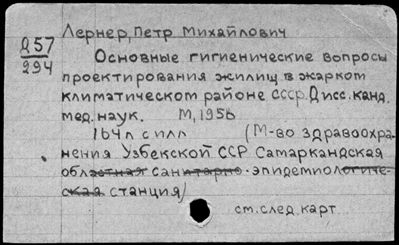 Лернер, Петр Михайлович
Д57
294
Основные гигиенические вопросы
проектирования жилищ в жарком
климатическом районе СССР. Дисс. канд.
мед. наук. М, 1956
164л с илл (М-во здравоохра-
нения Узбекской ССР Самаркандская
областная санитарно-эпидемиологиче-
ская станция)
см. след. карт.